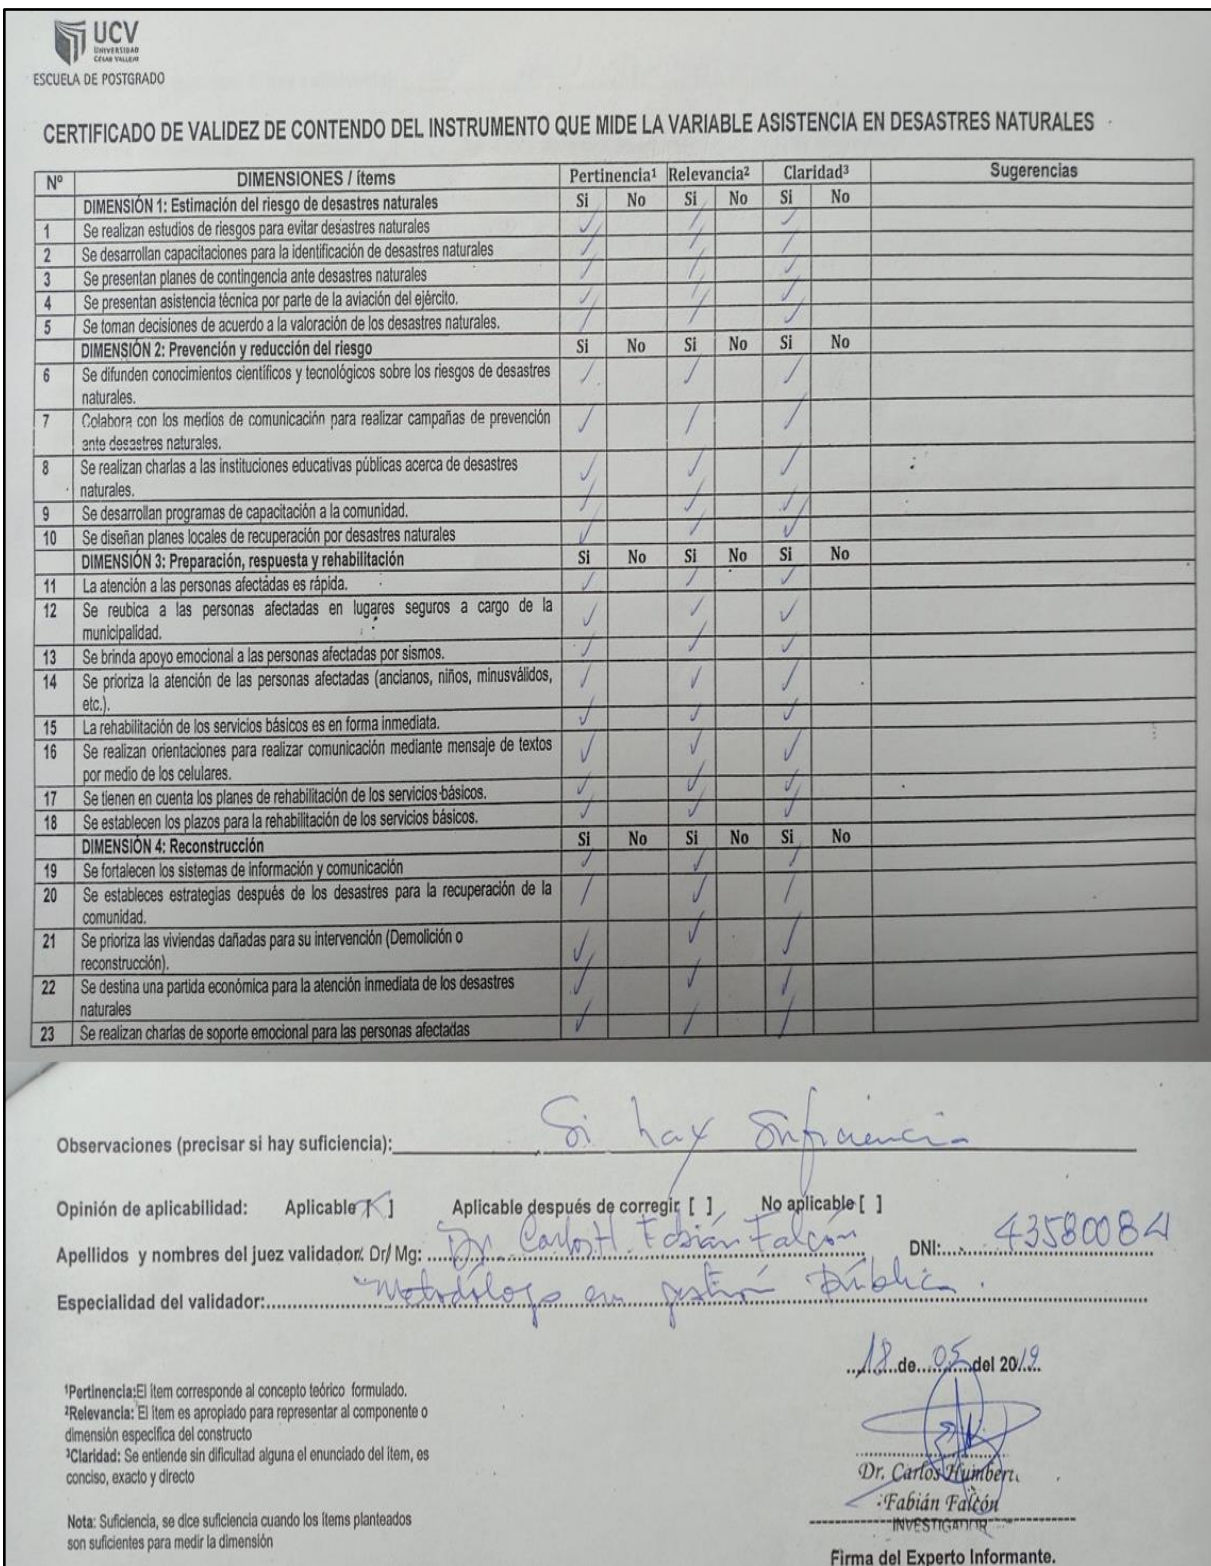 UCV
UNIVERSIDAD
CÉSAR VALLEJO
ESCUELA DE POSTGRADO
CERTIFICADO DE VALIDEZ DE CONTENDO DEL INSTRUMENTO QUE MIDE LA VARIABLE ASISTENCIA EN DESASTRES NATURALES
Nº DIMENSIONES / ítems Pertinencia¹ Relevancia² Claridad³ Sugerencias
DIMENSIÓN 1: Estimación del riesgo de desastres naturales Si No Si No Si No
1 Se realizan estudios de riesgos para evitar desastres naturales
2 Se desarrollan capacitaciones para la identificación de desastres naturales
3 Se presentan planes de contingencia ante desastres naturales
4 Se presentan asistencia técnica por parte de la aviación del ejército.
5 Se toman decisiones de acuerdo a la valoración de los desastres naturales.
DIMENSIÓN 2: Prevención y reducción del riesgo Si No Si No Si No
6 Se difunden conocimientos científicos y tecnológicos sobre los riesgos de desastres
naturales.
7 Colabora con los medios de comunicación para realizar campañas de prevención
ante desastres naturales.
8 Se realizan charlas a las instituciones educativas públicas acerca de desastres
naturales.
9 Se desarrollan programas de capacitación a la comunidad.
10 Se diseñan planes locales de recuperación por desastres naturales
DIMENSIÓN 3: Preparación, respuesta y rehabilitación Si No Si No Si No
11 La atención a las personas afectadas es rápida.
12 Se reubica a las personas afectadas en lugares seguros a cargo de la
municipalidad.
13 Se brinda apoyo emocional a las personas afectadas por sismos.
14 Se prioriza la atención de las personas afectadas (ancianos, niños, minusválidos,
etc.).
15 La rehabilitación de los servicios básicos es en forma inmediata.
16 Se realizan orientaciones para realizar comunicación mediante mensaje de textos
por medio de los celulares.
17 Se tienen en cuenta los planes de rehabilitación de los servicios básicos.
18 Se establecen los plazos para la rehabilitación de los servicios básicos.
DIMENSIÓN 4: Reconstrucción Si No Si No Si No
19 Se fortalecen los sistemas de información y comunicación
20 Se estableces estrategias después de los desastres para la recuperación de la
comunidad.
21 Se prioriza las viviendas dañadas para su intervención (Demolición o
reconstrucción).
22 Se destina una partida económica para la atención inmediata de los desastres
naturales
23 Se realizan charlas de soporte emocional para las personas afectadas
Observaciones (precisar si hay suficiencia): Si hay suficiencia
Opinión de aplicabilidad: Aplicable [X] Aplicable después de corregir [ ] No aplicable [ ]
Apellidos y nombres del juez validador. Dr/ Mg: Dr Carlos H. Fabián Falcón DNI: 43580084
Especialidad del validador: Metodólogo en gestión Pública.
18 de 05 del 2019
¹Pertinencia:El ítem corresponde al concepto teórico formulado.
²Relevancia: El ítem es apropiado para representar al componente o
dimensión específica del constructo
³Claridad: Se entiende sin dificultad alguna el enunciado del ítem, es
conciso, exacto y directo
Nota: Suficiencia, se dice suficiencia cuando los ítems planteados
son suficientes para medir la dimensión
Dr. Carlos Humberto
Fabián Falcón
INVESTIGADOR
Firma del Experto Informante.